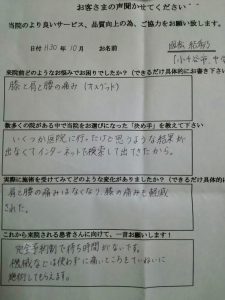 お客さまの声聞かせてください
当院のより良いサービス、品質向上の為、ご協力をお願い致します。
日付 H30年10月 お名前
来院前どのようなお悩みでお困りでしたか?(できるだけ具体的にお書き下さい
膝と肩と腰の痛み
数多くの院がある中で当院をお選びになった「決め手」を教えて下さい
いくつか医院に行ったけど思うような結果が
出なくてインターネットで検索して出てきたから。
実際に施術を受けてみてどのような変化がありましたか?(できるだけ具体的
肩と腰の痛みはなくなり、膝の痛みも軽減
された。
これから来院される患者さんに向けて、一言お願いします!
完全予約制で待ち時間がないです。
機械などは使わずに痛いところをていねいに
施術してもらえます。